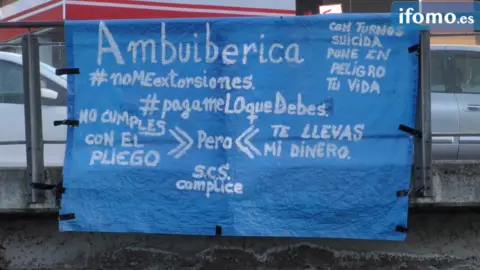 ifomo.es
AmbuibericA
#noMEextorsiones.
#pagameLOqueDebes.
CON TURNOS
SUICIDA
PONE EN
PELIGRO
TU VIDA
NO CUMPLES
CON EL
PLIEGO
>> Pero <<
TE LLEVAS
MI DINERO.
S.C.S.
complice